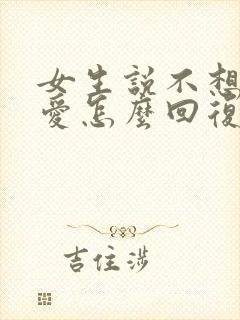 女生說不想
愛怎麼回復
吉住涉